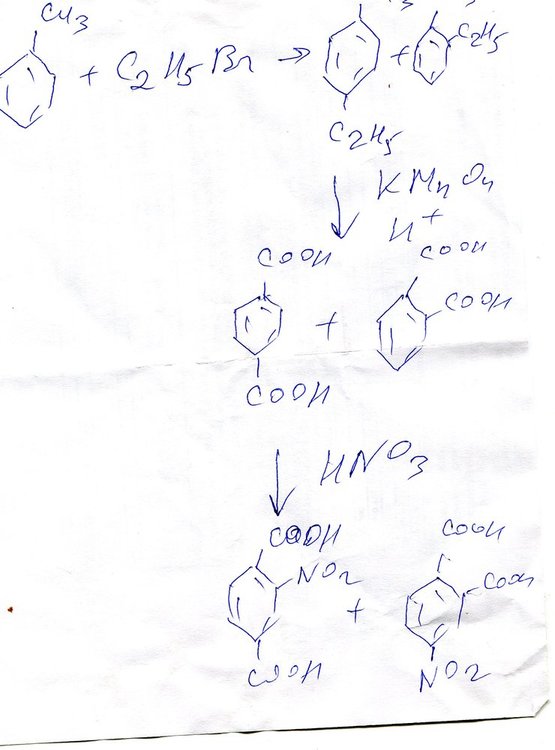 CH3
+ C2H5Br → + C2H5
C2H5
KMnO4
H+
COOH COOH
+ COOH
COOH
HNO3
COOH COOH
NO2 + COOH
COOH NO2